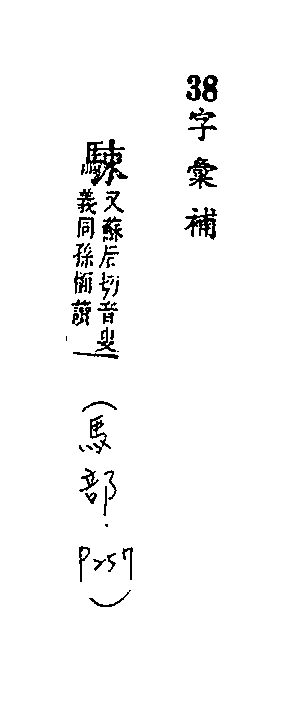 38字彙補
駷
又蘇后切音叟
義同孫愐讀
(馬部.P257)